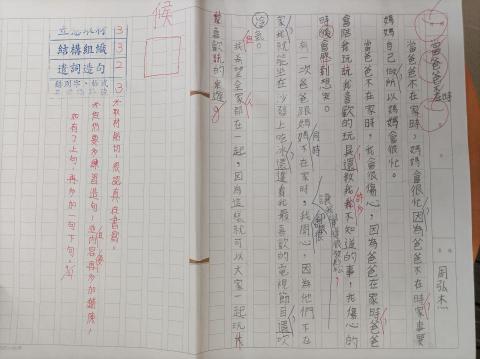 當爸爸不在時
當爸爸不在家時，媽媽會很忙因為爸爸不在家時事要
媽媽自己做所以媽媽會很忙。
當爸爸不在家時，我會很傷心，因為爸爸在家時爸爸
會陪我玩玩我喜歡的玩具還教我我不知道的事，我傷心的
時候會
想哭。
有一次爸爸跟媽媽不在家時，我開心，因為他們不在
同時
家我就能坐在沙發上吃冰還邊看我最喜歡的電視節目還吹
冷氣。
我希望全家都在一起，因為這樣就可以大家一起玩
我喜歡玩的桌遊。
周弘杰
候
立意取材 3
結構組織 3
遣詞造句 2
錯別字、格式 3
取材貼切，很認真在書寫。
但仍要多練習造句，內容再多加鍛鍊，
如有了上句，再多加一句下句。